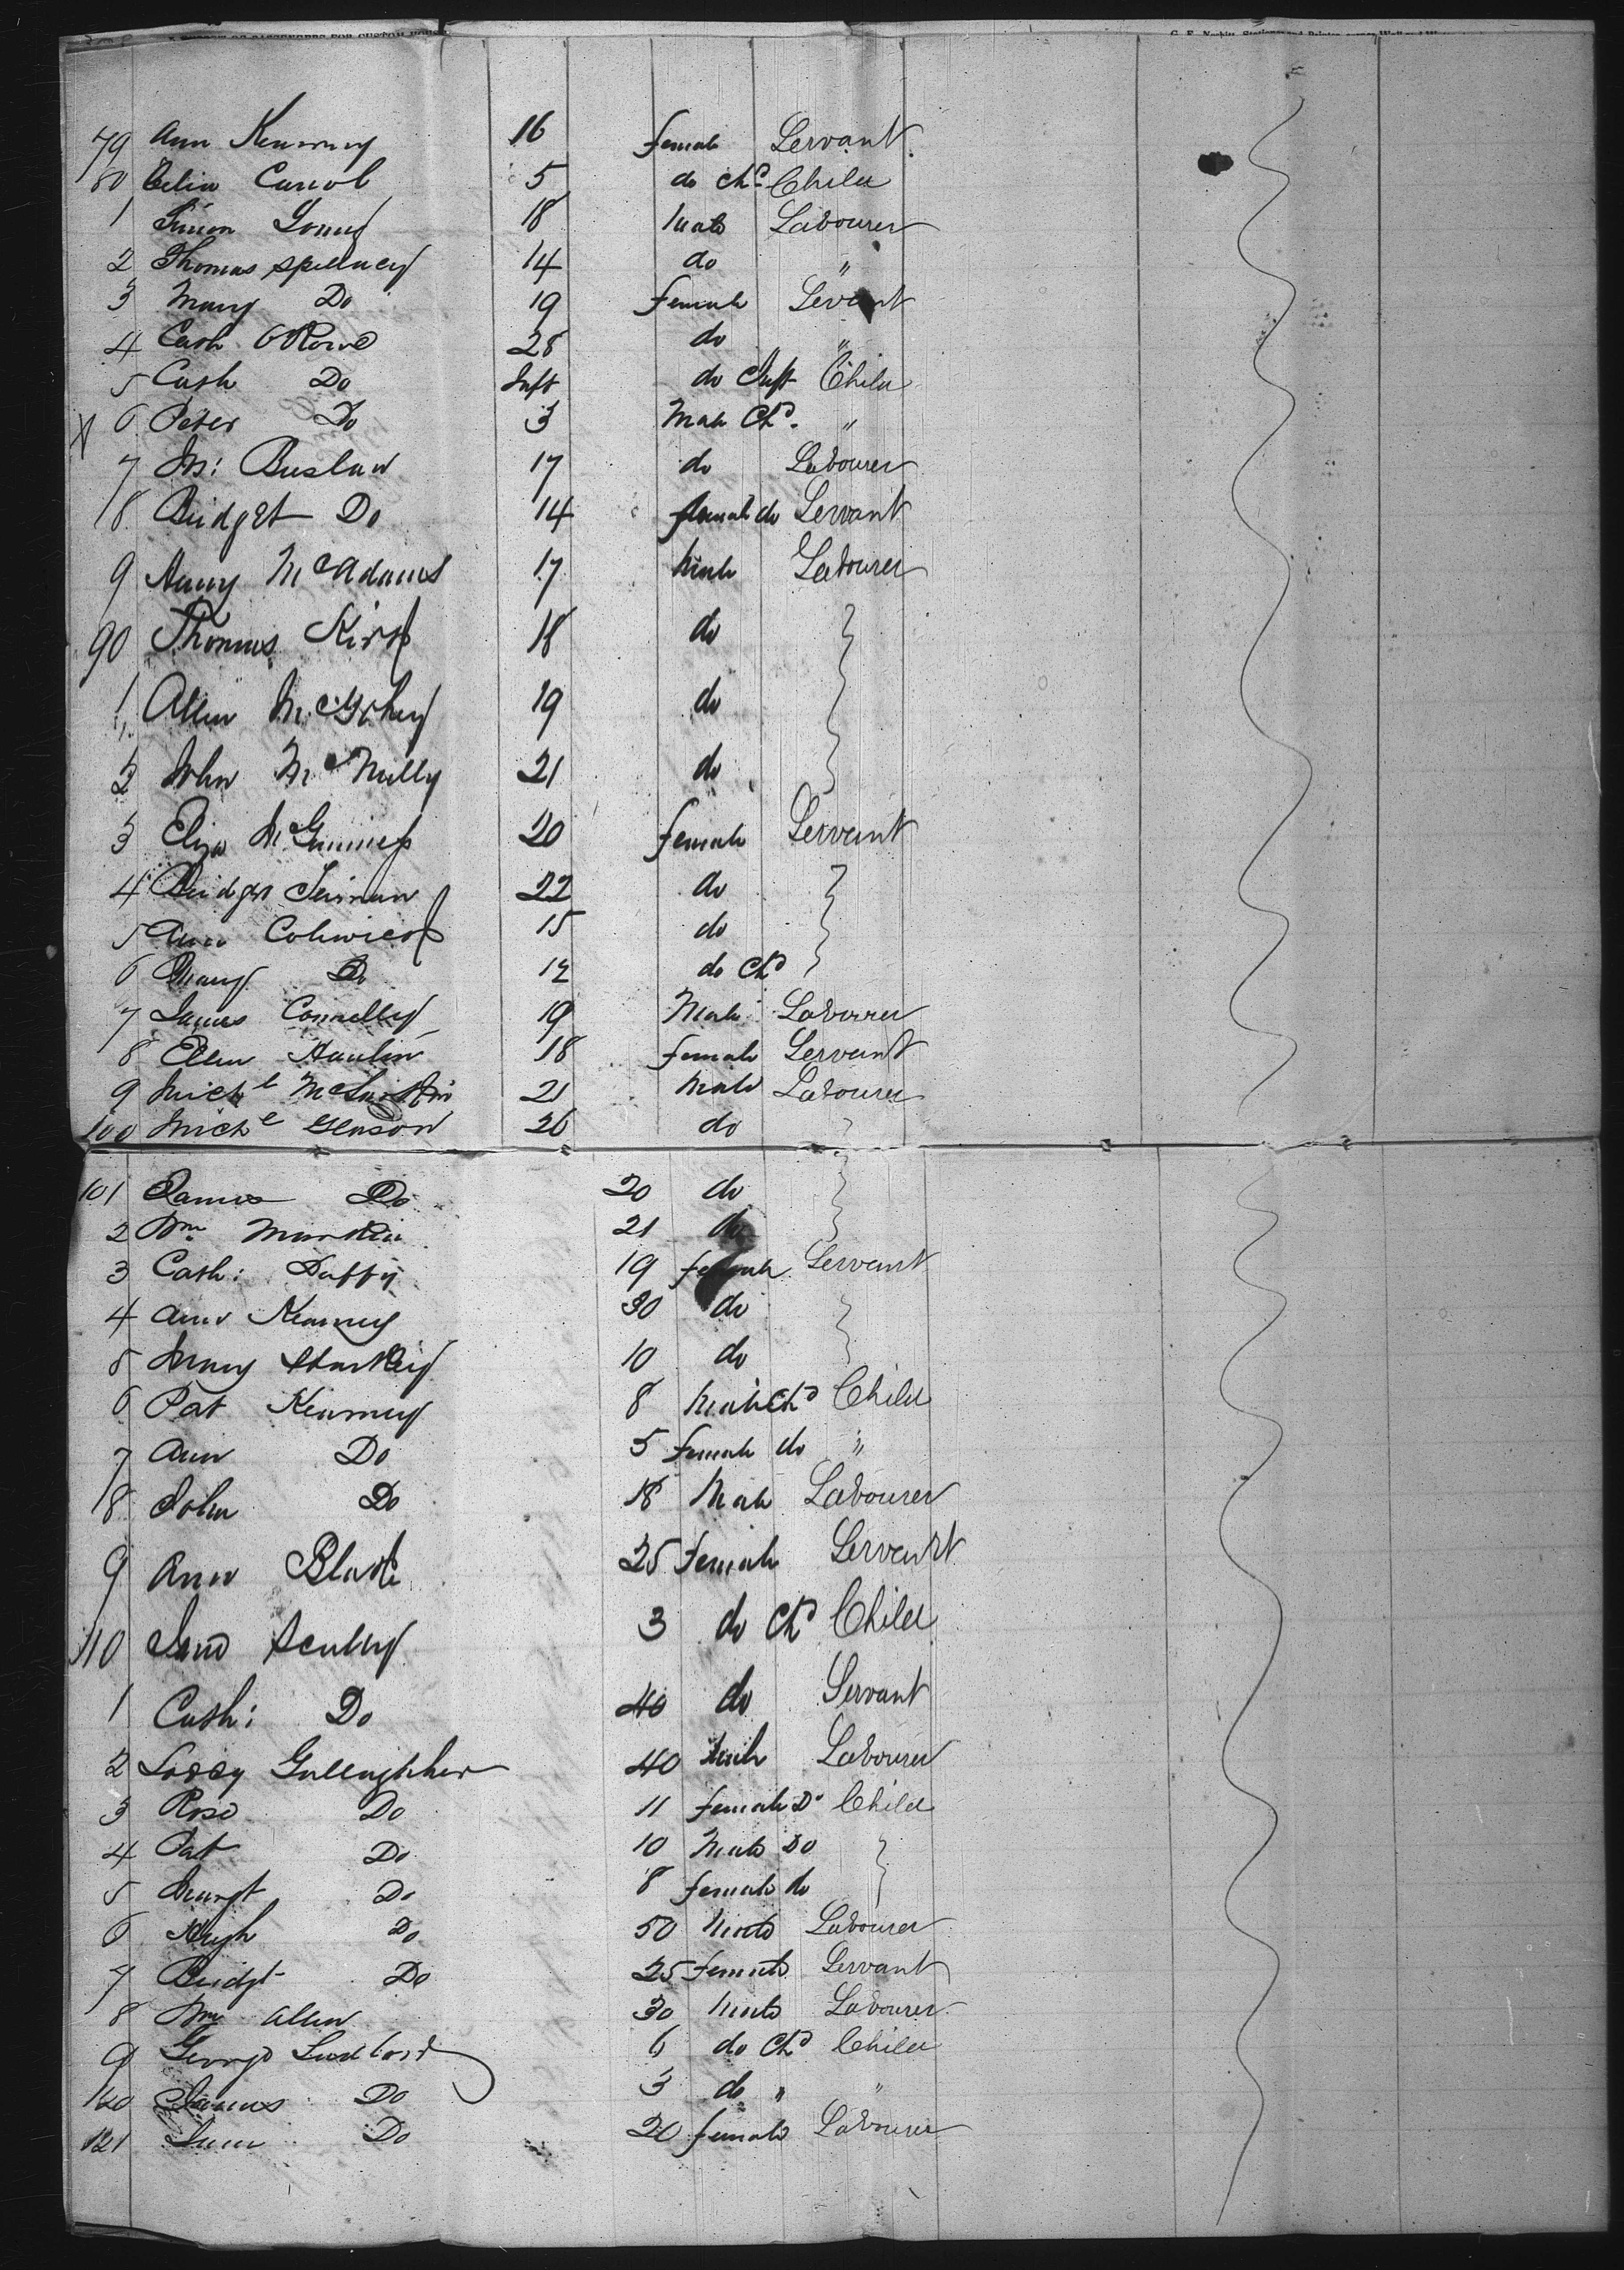 REPORT OF PASSENGERS FOR CUSTOM HOUSE
79 Ann Kearney 16 female Servant
80 Celia Carrol 5 do Chd Child
1 Simon 18 Male Labourer
2 Thomas Spellacy 14 do "
3 Mary Do 19 female Servant
4 Cath ORorke 28 do "
5 Cath Do Inft do Inft Child
X 6 Peter Do 3 Male Chd. "
7 Ms: Buslaw 17 do Labourer
8 Bridget Do 14 female do Servant
9 Henry McAdams 17 Male Labourer
90 Thomas Kirk 18 do
1 Allen McGohey 19 do
2 John McNully 21 do
3 Eliza McGinness 20 female Servant
4 Bridget 22 do
5 Ann 15 do
6 Mary Do 12 do Chd
7 James Connelly 19 Male Labourer
8 Ellen Hanlin 18 female Servant
9 Michl 21 Male Labourer
100 Michl Gleason 26 do
101 James Do 20 do
2 Wm 21 do
3 Cath: Duffy 19 female Servant
4 Ann Kearney 30 do
5 Mary 10 do
6 Pat Kearney 8 Male Chd Child
7 Ann Do 5 female do "
8 John Do 18 Male Labourer
9 Ann Blake 25 female Servant
110 Jane 3 do Chd Child
1 Cath: Do 40 do Servant
2 Gallaughher 40 Male Labourer
3 Rose Do 11 female Do Child
4 Pat Do 10 Male Do
5 Margt Do 8 female do
6 Hugh Do 50 Male Labourer
7 Bridgt Do 25 female Servant
8 Wm Allen 30 Male Labourer
9 George 6 do Chd Child
120 James Do 3 do " "
121 Jane Do 20 female Labourer